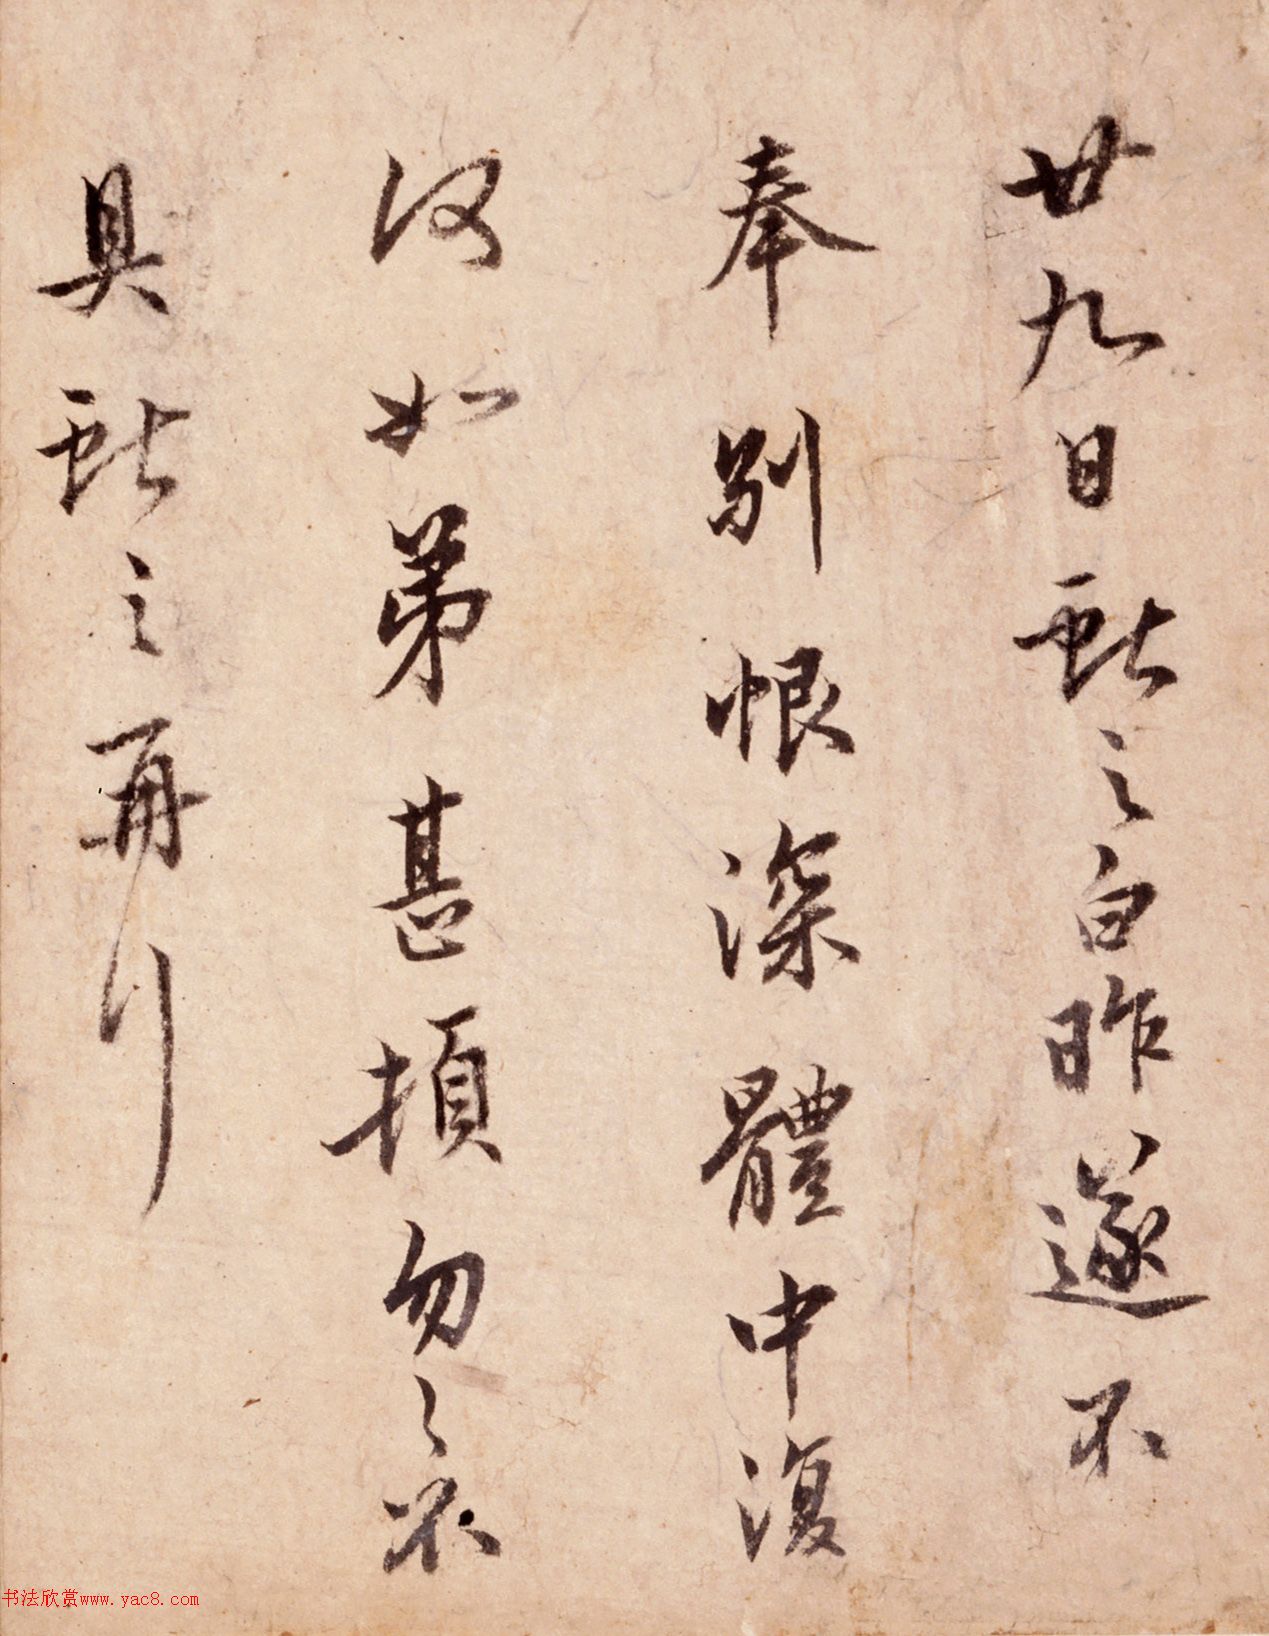 廿九日獻之白昨遂不
奉別悵深體中復
何如弟甚頓匆匆不
具獻之再行
书法欣赏www.yac8.com